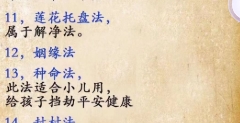 11，莲花托盘法，
属于解净法。
12，姻缘法
13，种命法，
此法适合小儿用，
给孩子挡劫平安健康